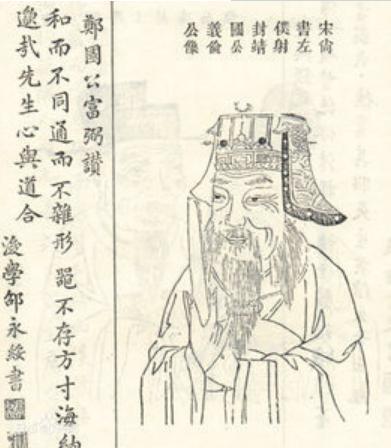 宋尚
書左
僕射
封靖
國公
義倫
公像
鄭國公富弼讚
和而不同通而不雜形器不存方寸海納
邈哉先生心與道合
後學邵永綏書